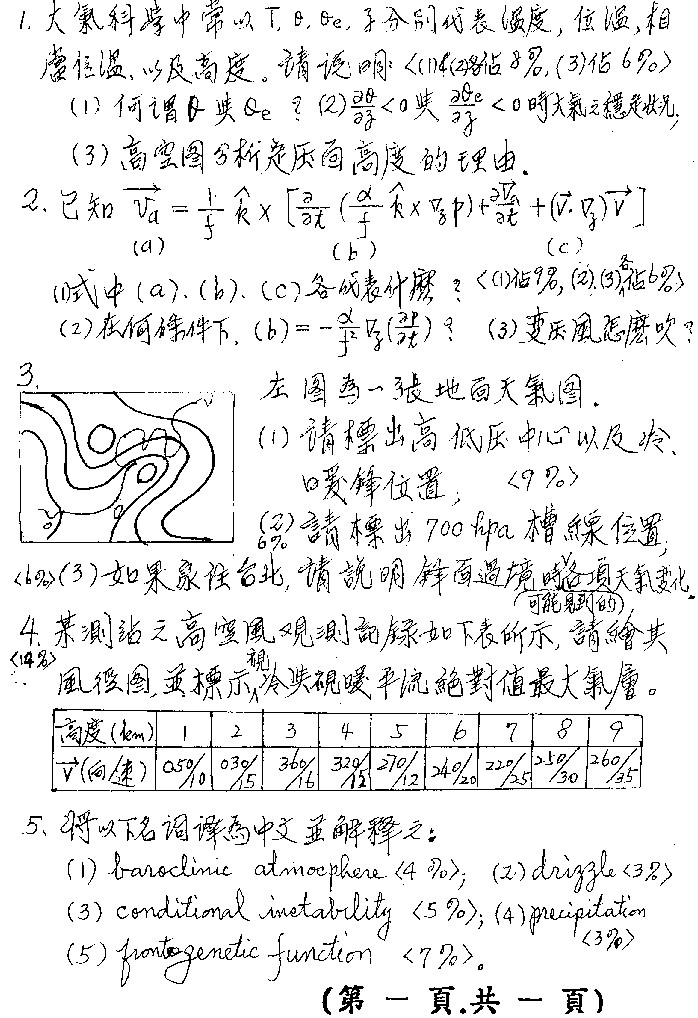 1. 大氣科學中常以 T, θ, θe, z 分別代表溫度, 位溫, 相
當位溫, 以及高度。請說明: <(1)(2)各佔8%, (3)佔6%>
(1) 何謂θ與θe? (2) ∂θ/∂z<0與 ∂θe/∂z<0時大氣之穩定狀況;
(3) 高空图分析定压面高度的理由.
2. 已知 V⃗a = 1/f k̂ × [∂/∂t (α/f k̂ × ∇zp) + ∂V⃗a/∂t + (V⃗·∇z)V⃗]
(a) (b) (c)
(1)式中(a)、(b)、(c)各代表什麼? <(1)佔9%, (2).(3)各佔6%>
(2) 在何條件下, (b) = -α/f² ∇z(∂p/∂t)? (3) 变压風怎麼吹?
3.
左图為一張地面天氣图.
(1) 請標出高低压中心以及冷、
暖鋒位置; <9%>
(2) 請標出 700 hpa 槽線位置;
6%
<6%>(3) 如果家住台北, 請說明鋒面過境時可能見到的各項天氣變化.
4. 某測站之高空風观測記錄如下表所示, 請繪其
<14%>
風徑图, 並標示視冷與視暖平流絕對值最大氣層。
高度(km) 1 2 3 4 5 6 7 8 9
V⃗(向/速) 050/10 030/15 360/16 320/12 270/12 240/20 220/25 250/30 260/35
5. 將以下名詞譯為中文並解釋之:
(1) baroclinic atmocphere <4%>; (2) drizzle <3%>
(3) conditional instability <5%>; (4) precipitation
<3%>
(5) frontogenetic function <7%>。
(第 一 頁.共 一 頁)